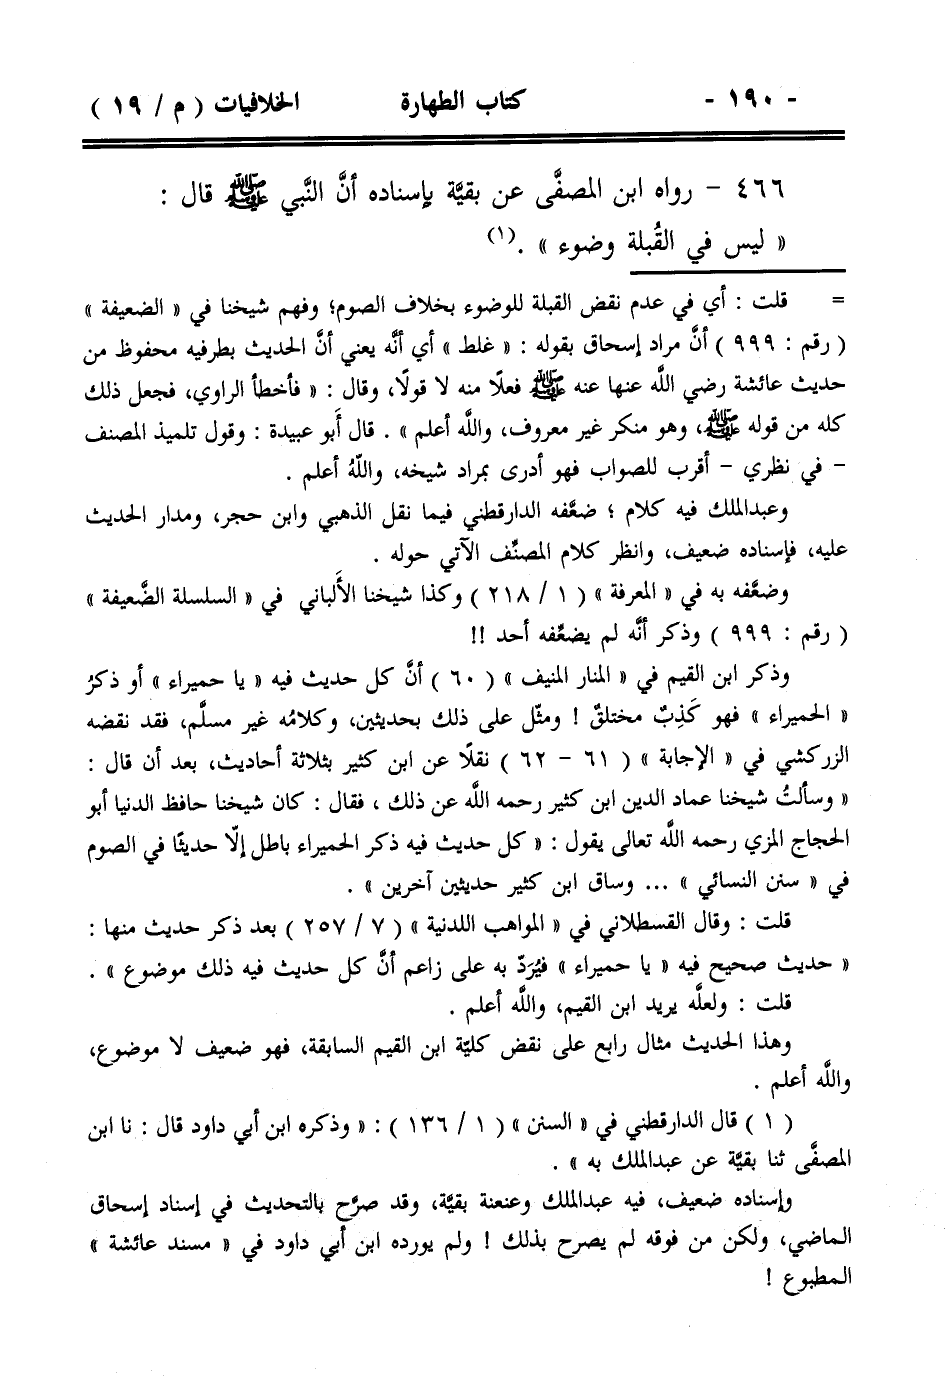 - ١٩٠ - كتاب الطهارة الخلافيات ( م / ١٩ )
٤٦٦ - رواه ابن المصفَّى عن بقيَّة بإسناده أنَّ النَّبي ﷺ قال :
« ليس في القُبلة وضوء » .(١)
= قلت : أي في عدم نقض القبلة للوضوء بخلاف الصوم؛ وفهم شيخنا في « الضعيفة »
( رقم : ٩٩٩ ) أنَّ مراد إسحاق بقوله : « غلط » أي أنَّه يعني أنَّ الحديث بطرفيه محفوظ من
حديث عائشة رضي اللَّه عنها عنه ﷺ فعلًا منه لا قولًا، وقال : « فأخطأ الراوي، فجعل ذلك
كله من قوله ﷺ، وهو منكر غير معروف، واللَّه أعلم » . قال أبو عبيدة : وقول تلميذ المصنف
- في نظري - أقرب للصواب فهو أدرى بمراد شيخه، واللَّهُ أعلم .
وعبدالملك فيه كلام ؛ ضعَّفه الدارقطني فيما نقل الذهبي وابن حجر، ومدار الحديث
عليه، فإسناده ضعيف، وانظر كلام المصنِّف الآتي حوله .
وضعَّفه به في « المعرفة » ( ١ / ٢١٨ ) وكذا شيخنا الأَلباني في « السلسلة الضَّعيفة »
( رقم : ٩٩٩ ) وذكر أنَّه لم يضعِّفه أحد !!
وذكر ابن القيم في « المنار المنيف » ( ٦٠ ) أنَّ كل حديث فيه « يا حميراء » أو ذكرُ
« الحميراء » فهو كَذِبٌ مختلقٌ ! ومثّل على ذلك بحديثين، وكلامُه غير مسلَّم، فقد نقضه
الزركشي في « الإجابة » ( ٦١ - ٦٢ ) نقلًا عن ابن كثير بثلاثة أحاديث، بعد أن قال :
« وسألتُ شيخنا عماد الدين ابن كثير رحمه اللَّه عن ذلك ، فقال : كان شيخنا حافظ الدنيا أبو
الحجاج المزي رحمه اللَّه تعالى يقول : « كل حديث فيه ذكر الحميراء باطل إلّا حديثًا في الصوم
في « سنن النسائي » ... وساق ابن كثير حديثين آخرين » .
قلت : وقال القسطلاني في « المواهب اللدنية » ( ٧ / ٢٥٧ ) بعد ذكر حديث منها :
« حديث صحيح فيه « يا حميراء » فيُرَدّ به على زاعم أنَّ كل حديث فيه ذلك موضوع » .
قلت : ولعلَّه يريد ابن القيم، واللَّه أعلم .
وهذا الحديث مثال رابع على نقض كليّة ابن القيم السابقة، فهو ضعيف لا موضوع،
واللَّه أعلم .
( ١ ) قال الدارقطني في « السنن » ( ١ / ١٣٦ ) : « وذكره ابن أبي داود قال : نا ابن
المصفَّى ثنا بقيَّة عن عبدالملك به » .
وإسناده ضعيف، فيه عبدالملك وعنعنة بقيَّة، وقد صرَّح بالتحديث في إسناد إسحاق
الماضي، ولكن من فوقه لم يصرح بذلك ! ولم يورده ابن أبي داود في « مسند عائشة »
المطبوع !